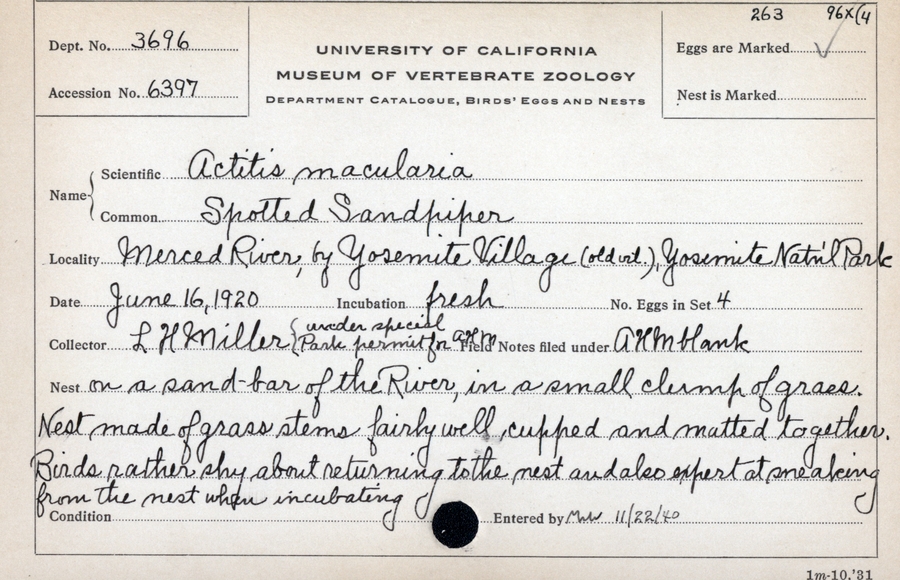 263 96x(4
Dept. No. 3696
UNIVERSITY OF CALIFORNIA
Eggs are Marked ✓
MUSEUM OF VERTEBRATE ZOOLOGY
Accession No. 6397
DEPARTMENT CATALOGUE, BIRDS' EGGS AND NESTS
Nest is Marked
Name { Scientific Actitis macularia
Common Spotted Sandpiper
Locality Merced River, by Yosemite Village (old vil.), Yosemite Nat'nl Park
Date June 16, 1920 Incubation fresh No. Eggs in Set 4
Collector L H Miller { under special
Park permit for AHM Field Notes filed under AHM blank
Nest on a sand-bar of the River, in a small clump of grass.
Nest made of grass stems fairly well cupped and matted together.
Birds rather shy about returning to the nest and also expert at sneaking
from the nest when incubating
Condition Entered by 11/22/40
1m-10,'31